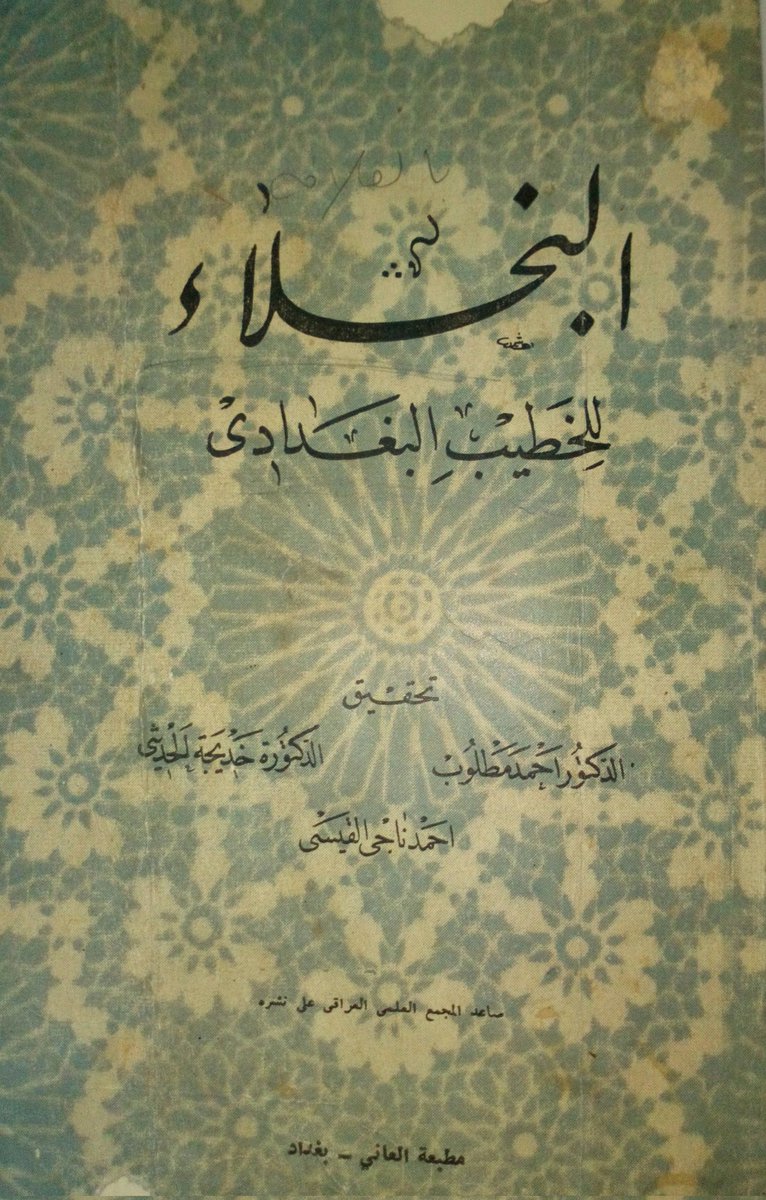 البخلاء
للخطيب البغدادي
تحقيق
الدكتور احمد مطلوب الدكتورة خديجة الحديثي
احمد ناجي القيسي
ساعد المجمع العلمي العراقي على نشره
مطبعة العاني - بغداد